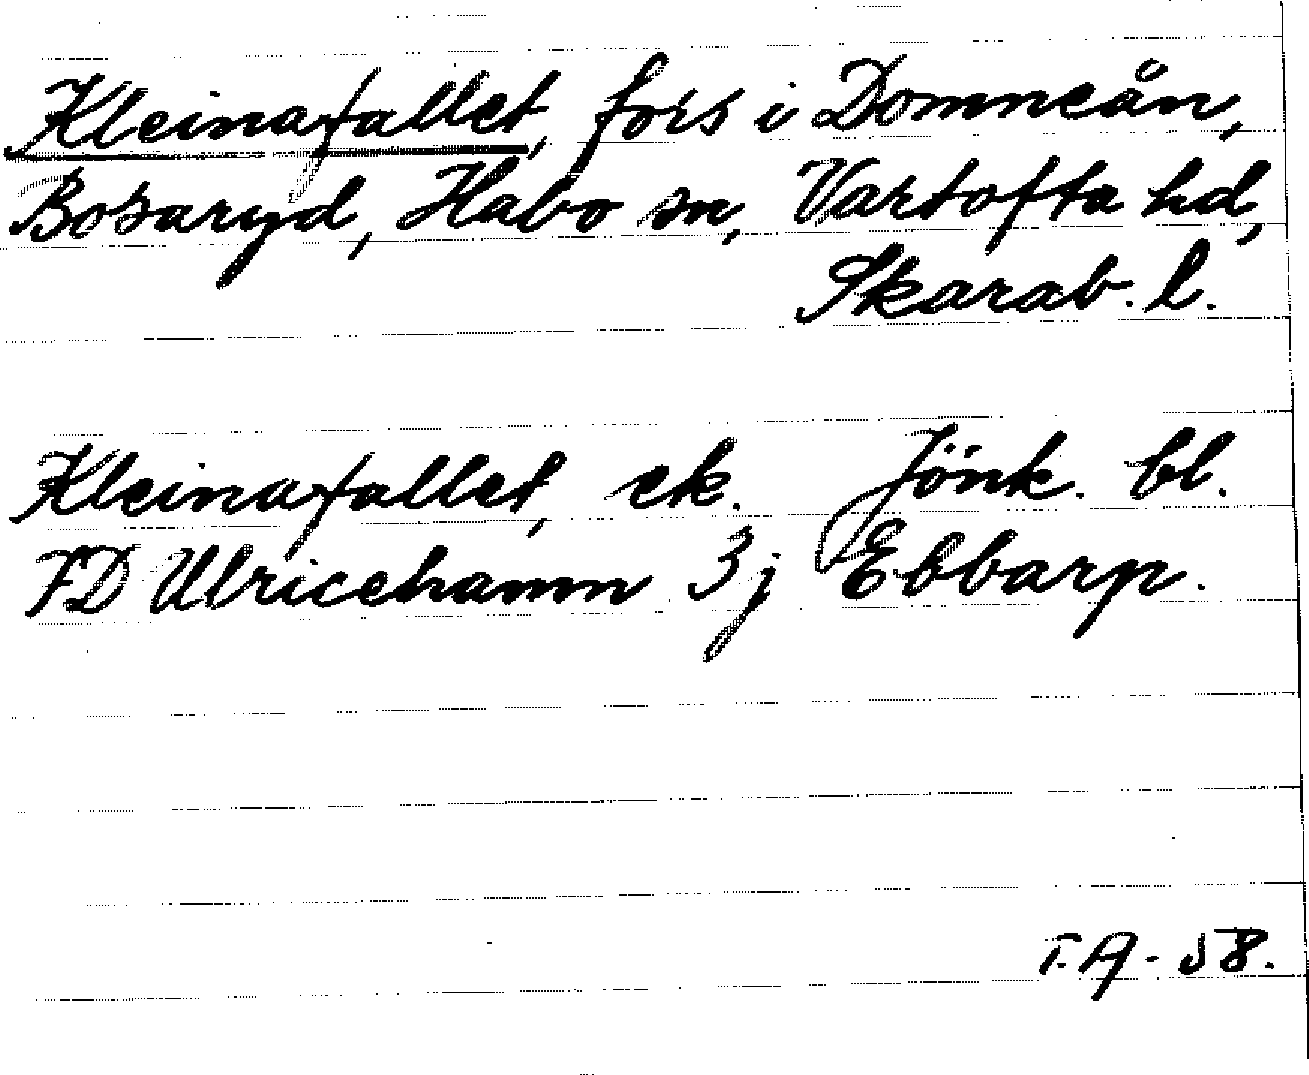 Kleinafallet, fors i Domneån,
Bosaryd, Habo sn, Vartofta hd,
Skarab. l.
Kleinafallet, ek. Jönk. bl.
FD Ulricehamn 3j Ebbarp.
T.A-58.